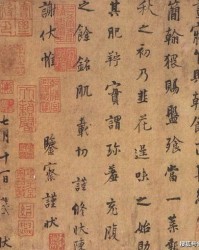 簡翰猥賜盤飧當一葉
秋之初乃韭花逞味之始助
其肥羜實謂珍羞充腹
之餘銘肌載切謹修狀陳
謝伏惟
鑒察謹狀
七月十一日 狀